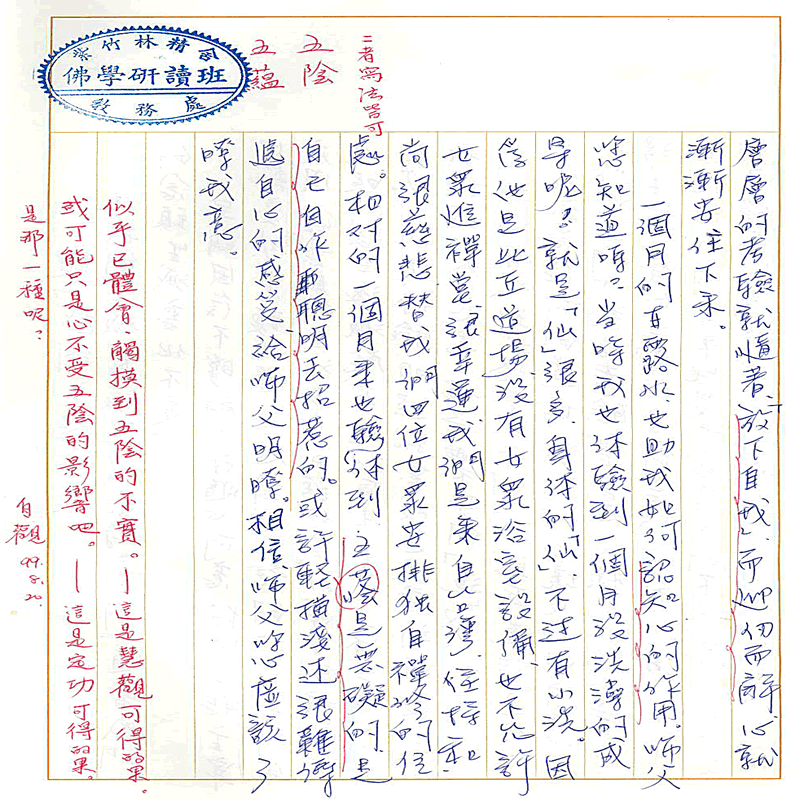 紫竹林精舍
佛學研讀班
教務處
二者寫法皆可
五陰
五蘊
層層的考驗就隨著「放下自我」而迎刃而解心就
漸漸安住下來。
一個月的甘露水也助我如何認知心的作用。師父
您知道嗎？當時我也体驗到一個月沒洗澡的成
果呢？就是「仙」很多，身体的「仙」，不过有小洗。因
為他是比丘道場沒有女眾浴室設備，也不允許
女眾進禪堂，很幸運我們是來自台灣，住持和
尚很慈悲替我們四位女眾安排独自禪修的住
處。相对的一個月來也體体到，五蔭是無礙的，是
自己自作聰明去招惹的。或許輕描淡述很難傳
遞自心的感覺給師父明瞭。相信師父的心應該了
瞭我意。
似乎已體會、觸摸到五陰的不實。—這是慧觀可得的果。
或可能只是心不受五陰的影響吧。—這是定功可得的果。
是那一種呢？
自觀 99.8.20.